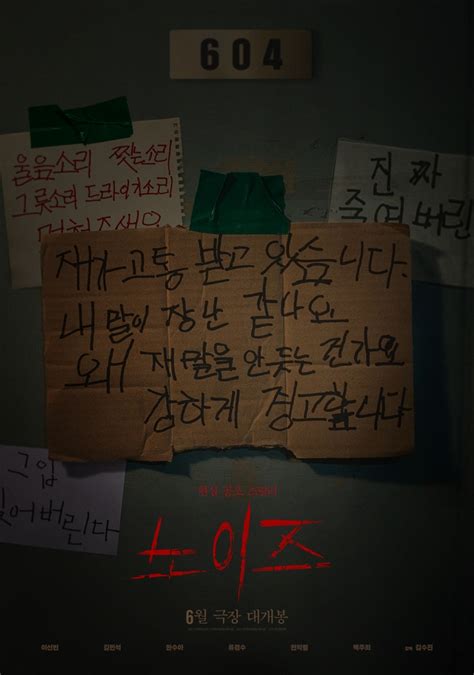 604
울음소리
그릇소리 드라이기소리
진짜
죽여버린
재가 고통 받고 있습니다.
내 말이 장난 같나요
왜 재말을 안듣는 건가요
강하게 경고합니다
그입
어버린다
현실 공포 스릴러
노이즈
6월 극장 대개봉
이선빈 김민석 한수아 류경수 전익령 백주희 감독 김수진